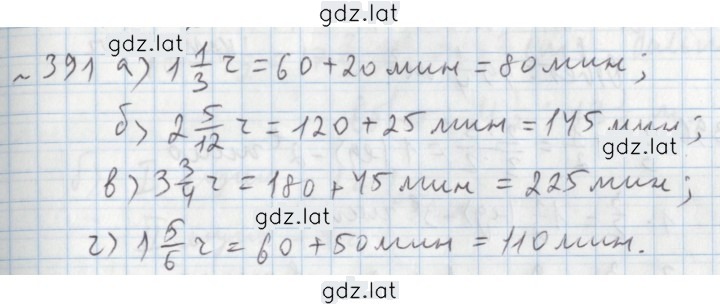 gdz.lat
№ 391 а) 1 1/3 ч = 60 + 20 мин = 80 мин;
gdz.lat
б) 2 5/12 ч = 120 + 25 мин = 145 мин;
в) 3 3/4 ч = 180 + 45 мин = 225 мин;
gdz.lat
г) 1 5/6 ч = 60 + 50 мин = 110 мин.
gdz.lat